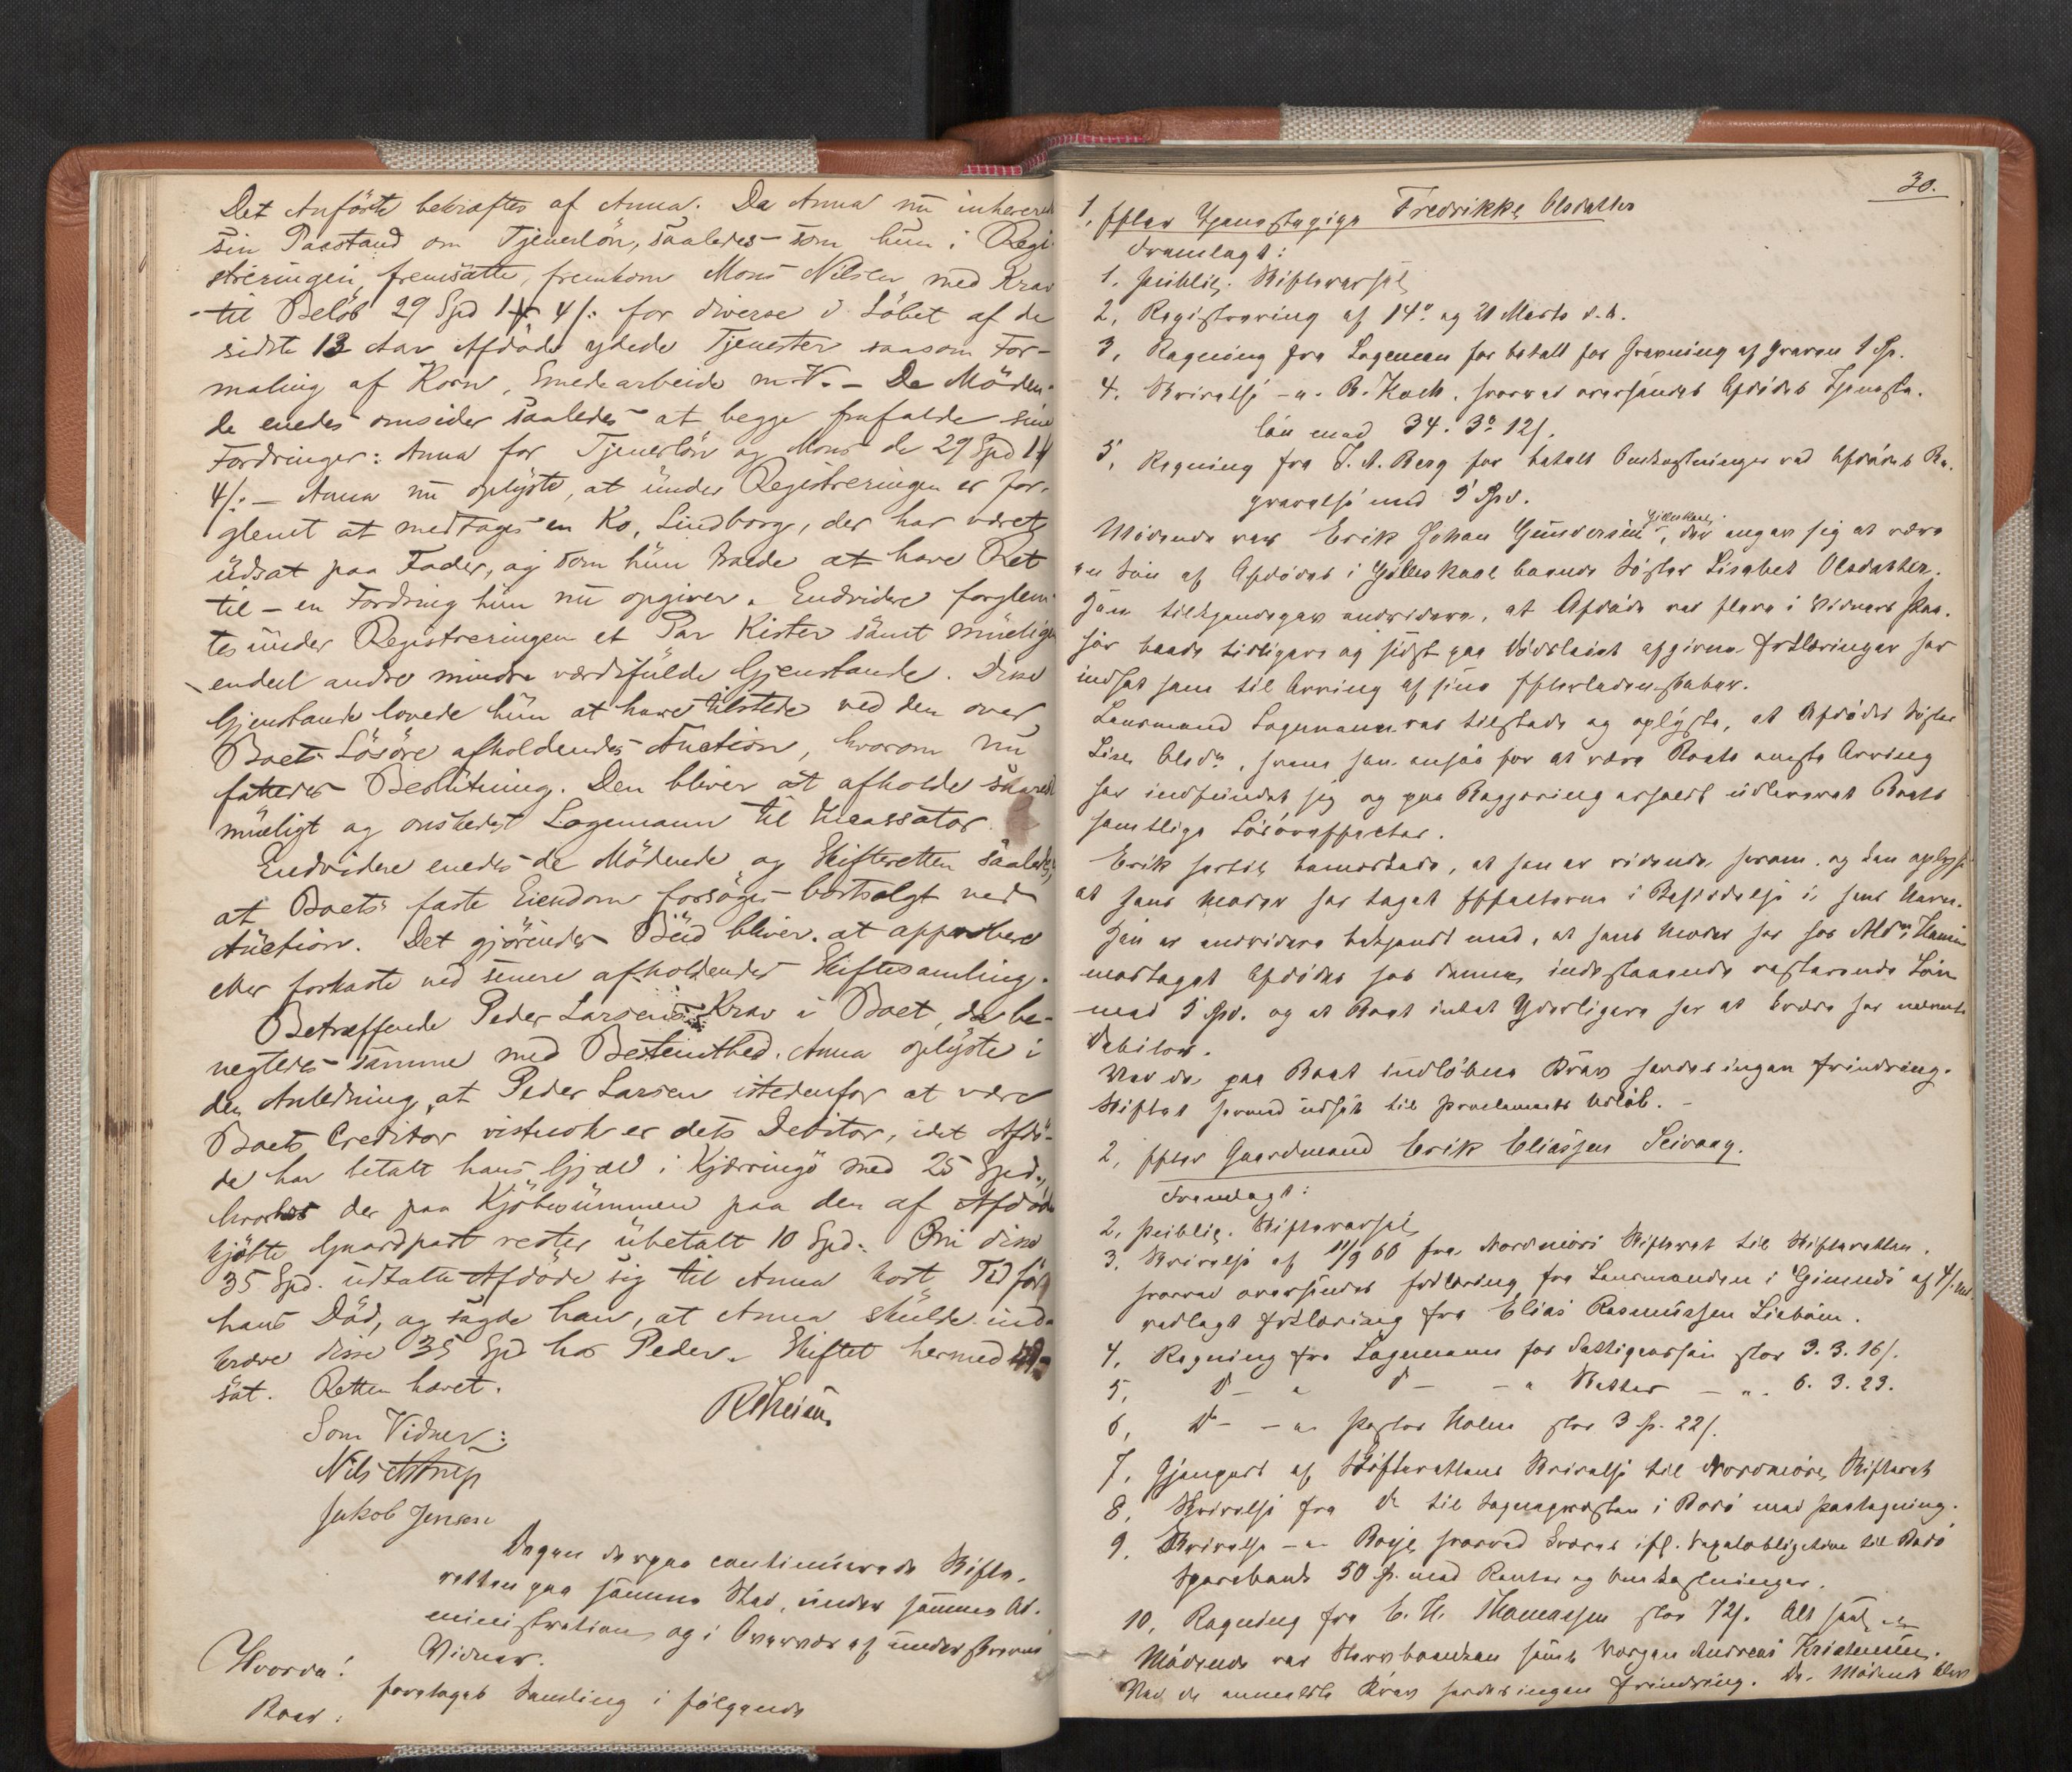 Det Anförte bekræftes af Anna. Da Anna nu inhererede
sin Paastand om Tjenerlön, saaledes som hun i Regi-
streringen fremsatte, fremkom Mons Nilsen med Krav
til Belöb 29 Spd 1 4 /: for diverse i Löbet af de
sidste 13 Aar Afdöde ydede Tjenester saasom For-
maling af Korn, Smedearbeide m.V. – De Möden-
de enedes omsider saaledes at begge frafaldt sine
Fordringer: Anna for Tjenerlön og Mons de 29 Spd 1
4/: – Anna nu oplyste, at under Registreringen er for-
glemt at medtages en Ko, Lindborg, der har været
udsat paa Foder, og som hun troede at have Ret
til – en Fordring hun nu opgiver. Endvidere forglem-
tes under Registreringen et Par Kister samt muligen
endeel andre mindre værdifulde Gjenstande. Disse
Gjenstande lovede hun at have tilstede ved den over
Boets Lösöre afholdendes Auction, hvorom nu
fattedes Beslutning. Den bliver at afholde snarest
muligt og önskedes Lagemann til Incassator.
Endvidere enedes de Mödende og Skifteretten saaledes,
at Boets faste Eiendom forsöges bortsolgt ved
Auction. Det gjörendes Bud bliver at approbere
eller forkaste ved senere afholdendes Skiftesamling.
Betræffende Peder Larsens Krav i Boet, da be-
negtedes samme med Bestemthed. Anna oplyste i
den Anledning, at Peder Larsen istedenfor at være
Boets Creditor vistnok er dets Debitor, idet Afdö-
de har betalt hans Gjæld i Kjerringö med 25 Spd.,
hvorhos der paa Kjöbesummen paa den af Afdöde
kjöbte Gaardpart rester ubetalt 10 Spd. Om disse
35 Spd. udtalte Afdöde sig til Anna kort Tid för
hans Död, og sagde han, at Anna skulde ind-
kræve disse 35 Spd hos Peder. Skiftet hermed ud-
sat. Retten hævet.
Som Vidner:
Nils
Jakob Jensen
Dagen derpaa continuerede Skifte-
retten paa samme Sted, under samme Ad-
ministration og i Overvær af underskrevne
Vidner.
Hvorda!
foretoges Samling i fölgende
Boer:
30.
1, Efter Tjenestepige Fredrikke Olsdatter
Fremlagt:
1. Publiq. Skiftevarsel
2, Registrering af 14de og 21 Marts d.A.
3, Regning fra Lagemann for betalt for Gravning af Graven 1 Sp.
4, Skrivelse – a. B. Koch, hvorved oversendes Afdödes Tjeneste-
lön med 34. 3. 12/.
5, Regning fra J. A. Berg for betalt Omkostninger ved Afdödes Be-
gravelse med 5 Spd.
Mödende var Erik Johan Gundersen Gilleskaal, der angav sig at være
en Sön af Afdödes i Gilleskaal boende Söster Lisabet Olsdatter.
Han tilkjendegav endvidere, at Afdöde ved flere i Vidners Paa-
hör baade tidligere og sidst paa Dödsleiet afgivne Erklæringer har
indsat ham til Arving af sine Efterladenskaber.
Lensmand Lagemann var tilstede og oplyste, at Afdödes Söster
Lise Olsdr, hvem han ansaa for at være Boets eneste Arving
har indfundet sig og paa Begjæring erholdt udleveret Boets
samtlige Lösöreeffecter.
Erik hertil bemærkede, at han er vidende herom, og han oplyste
at hans Moder har taget Effecterne i Besiddelse i hans Navn.
Han er endvidere bekjendt med, at hans Moder har hos
modtaget Afdödes hos denne indestaaende resterende Lön
med 5 Spd. og at Boet intet Yderligere har at kræve hos nævnte
Debitor.
Mod de paa Boet indlöbne Krav havdes ingen Erindring.
Skiftet hermed udsat til Proclamaets Udlöb. –
2, Efter Gaardmand Erik Eliassen Seivaag.
Fremlagt:
2, Publiq. Skiftevarsel
3, Skrivelse af 11/9 60 fra Nordmöre Skifteret til Skifteretten,
hvorved oversendes Erklæring fra Lensmanden i
vedlagt Erklæring fra Elias Rasmussen
4, Regning fra Lagemann for Fattigcassen stor 3. 3. 16/.
5, D – a D – – a Skatter – „. 6. 3. 23.
6, D – – a Pastor Holm stor 3 Sp. 22/.
7, Gjenpart af Skifterettens Skrivelse til Nordmöre Skifteret
8, Skrivelse fra D til Sogneprosten i Bodö med Paategning.
9, Skrivelse – a Boye hvorved kræves ifl. Vexelobligation til Bodö
Sparebank 50 Sp. med Renter og Omkostninger.
10, Regning fra E. H. Thomassen stor 72/. Alt saal.
Mödende var Stervboenken samt Værgen Andreas Kristensen.
Mod de anmeldte Krav havdes ingen Erindring. De Mödende blev